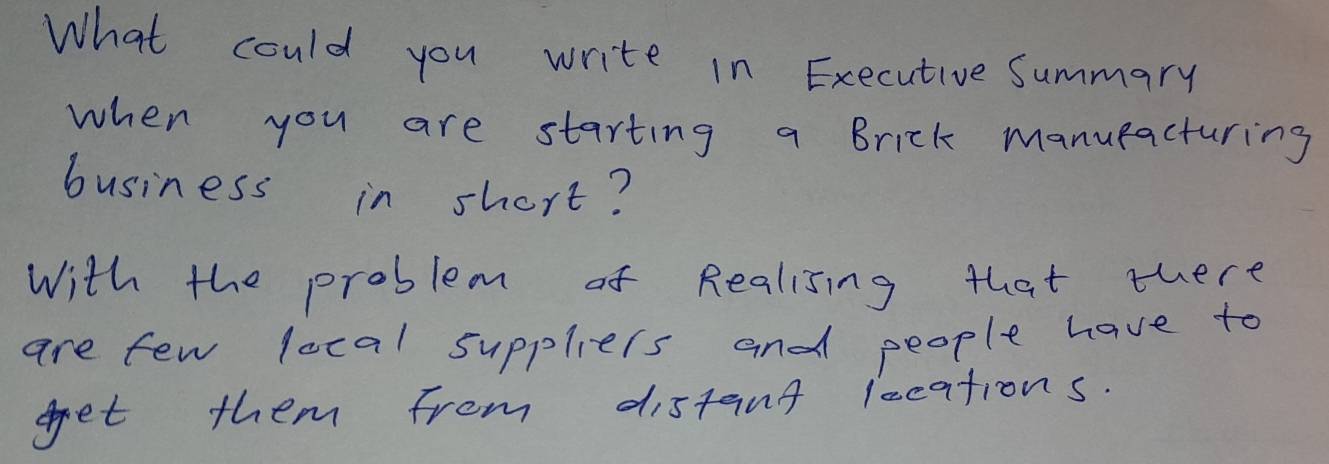 What could you write in Executive Summary
when you are starting a Brick Manufacturing
business in short?
With the problem of Realising that there
are few local suppliers and people have to
get them from distant locations.